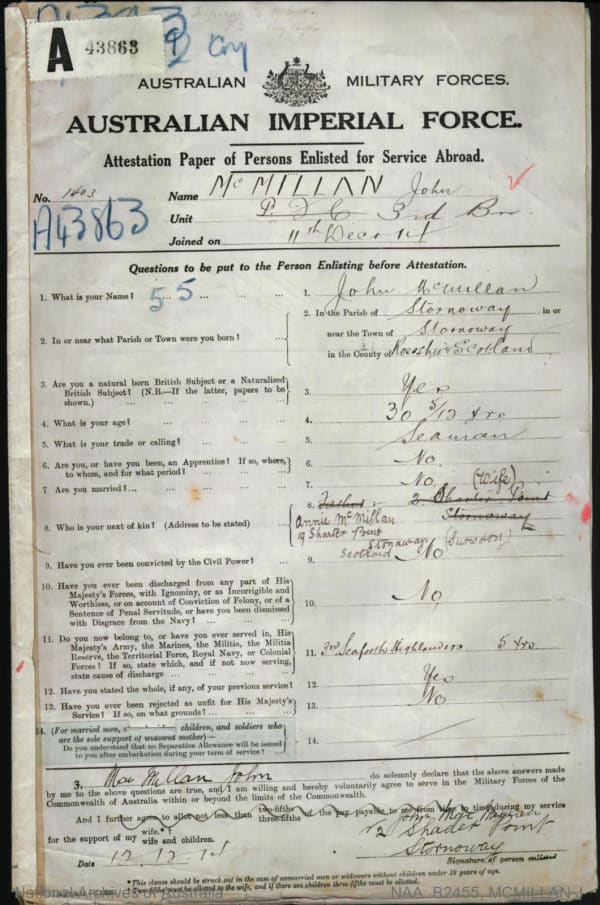 A 43863
AUSTRALIAN MILITARY FORCES.
AUSTRALIAN IMPERIAL FORCE.
Attestation Paper of Persons Enlisted for Service Abroad.
No. 1403 Name McMILLAN John
A43863 Unit 3rd Bn
Joined on 11th Decr 14
Questions to be put to the Person Enlisting before Attestation.
1. What is your Name? ... ... ... ... 1. John McMillan
55
2. In or near what Parish or Town were you born? ... 2. In the Parish of Stornoway in or
near the Town of Stornoway
in the County of Rosshire Scotland
3. Are you a natural born British Subject or a Naturalized
British Subject? (N.B.—If the latter, papers to be
shown.) ... ... ... ... 3. Yes
4. What is your age? ... ... ... ... 4. 30 5/12 yrs
5. What is your trade or calling? ... ... ... 5. Seaman
6. Are you, or have you been, an Apprentice? If so, where,
to whom, and for what period? ... ... 6. No.
7 Are you married? ... ... ... ... 7. No. (Wife)
8. Who is your next of kin? (Address to be stated) ... 8. Father :- 2 Sharder Point
Stornoway
Annie McMillan
19 Sharter Point
Stornoway
Scotland
9. Have you ever been convicted by the Civil Power? ... 9. No
10. Have you ever been discharged from any part of His
Majesty's Forces, with Ignominy, or as Incorrigible and
Worthless, or on account of Conviction of Felony, or of a
Sentence of Penal Servitude, or have you been dismissed
with Disgrace from the Navy? ... ... ... 10. No,
11. Do you now belong to, or have you ever served in, His
Majesty's Army, the Marines, the Militia, the Militia
Reserve, the Territorial Force, Royal Navy, or Colonial
Forces? If so, state which, and if not now serving,
state cause of discharge ... ... ... 11. 3rd Seaforth Highlanders 5 yrs
12. Have you stated the whole, if any, of your previous service? 12. Yes
13. Have you ever been rejected as unfit for His Majesty's
Service? If so, on what grounds? ... ... 13. No
14. (For married men, children, and soldiers who
are the sole support of widowed mother)—
Do you understand that no Separation Allowance will be issued
to you after embarkation during your term of service? ... 14.
I, Mac Millan John do solemnly declare that the above answers made
by me to the above questions are true, and I am willing and hereby voluntarily agree to serve in the Military Forces of the
Commonwealth of Australia within or beyond the limits of the Commonwealth.
And I further agree to allot not less than two-fifths three-fifths of the pay payable to me from time to time during my service
for the support of my wife.* wife and children.
John Mac Millan
2 Shader Point
Stornoway
Date 12.12.14 Signature of person enlisted
* This clause should be struck out in the case of unmarried men or widowers without children under 18 years of age.
Two-fifths must be allotted to the wife, and if there are children three-fifths must be allotted.
National Archives of Australia NAA: B2455, MCMILLAN J